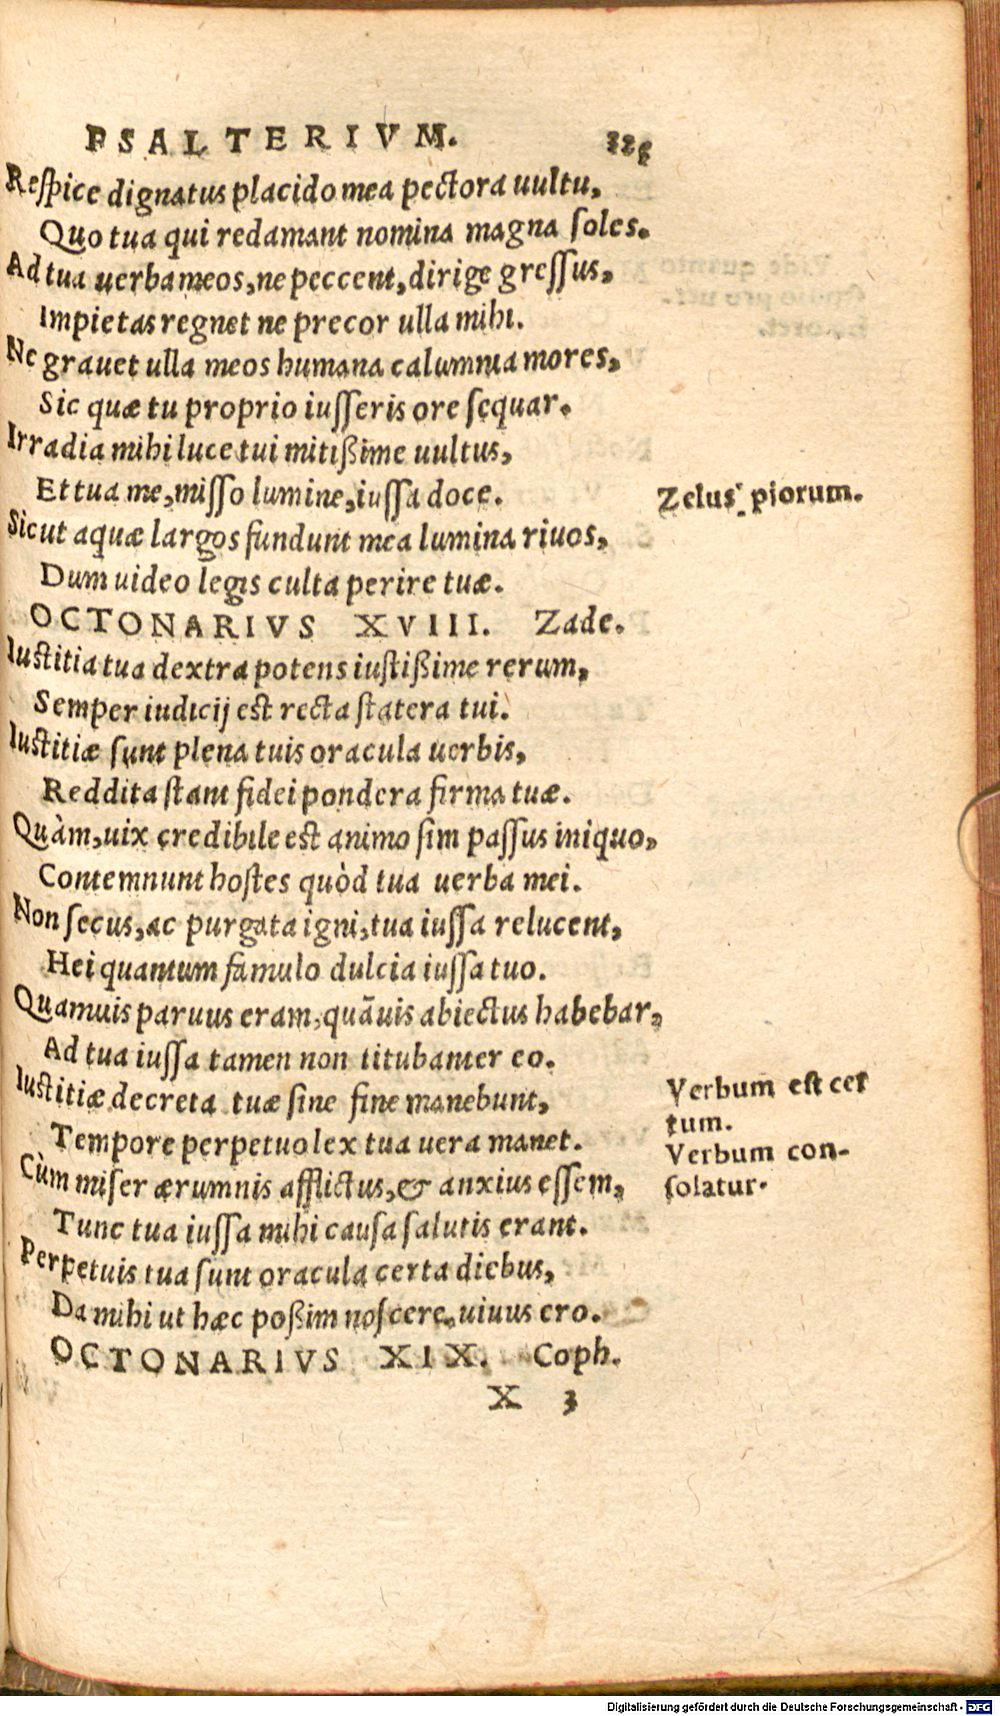 PSALTERIVM.
Reſpice dignatus placido mea pectora uultu,
Quo tua qui redamant nomina magna ſoles.
Ad tua uerba meos, ne peccent, dirige greſſus,
Impietas regnet ne precor ulla mihi.
Ne grauet ulla meos humana calumnia mores,
Sic quæ tu proprio iuſſeris ore ſequar.
Irradia mihi luce tui mitißime uultus,
Et tua me, miſſo lumine, iuſſa doce.
Zelus piorum.
Sicut aquæ largos fundunt mea lumina riuos,
Dum uideo legis culta perire tuæ.
OCTONARIVS XVIII. Zade.
Iuſtitia tua dextra potens iuſtißime rerum,
Semper iudicij eſt recta ſtatera tui.
Iuſtitiæ ſunt plena tuis oracula uerbis,
Reddita ſtant fidei pondera firma tuæ.
Quàm, uix credibile eſt animo ſim paſſus iniquo,
Contemnunt hoſtes quòd tua uerba mei.
Non ſecus, ac purgata igni, tua iuſſa relucent,
Hei quantum famulo dulcia iuſſa tuo.
Quamuis paruus eram, quãuis abiectus habebar,
Ad tua iuſſa tamen non titubanter eo.
Iuſtitiæ decreta tuæ ſine fine manebunt,
Verbum eſt cer
tum.
Tempore perpetuo lex tua uera manet.
Verbum con-
ſolatur.
Cùm miſer ærumnis afflictus, & anxius eſſem,
Tunc tua iuſſa mihi cauſa ſalutis erant.
Perpetuis tua ſunt oracula certa diebus,
Da mihi ut hæc poßim noſcere, uiuus ero.
OCTONARIVS XIX. Coph.
X 3
Digitalisierung gefördert durch die Deutsche Forschungsgemeinschaft - DFG